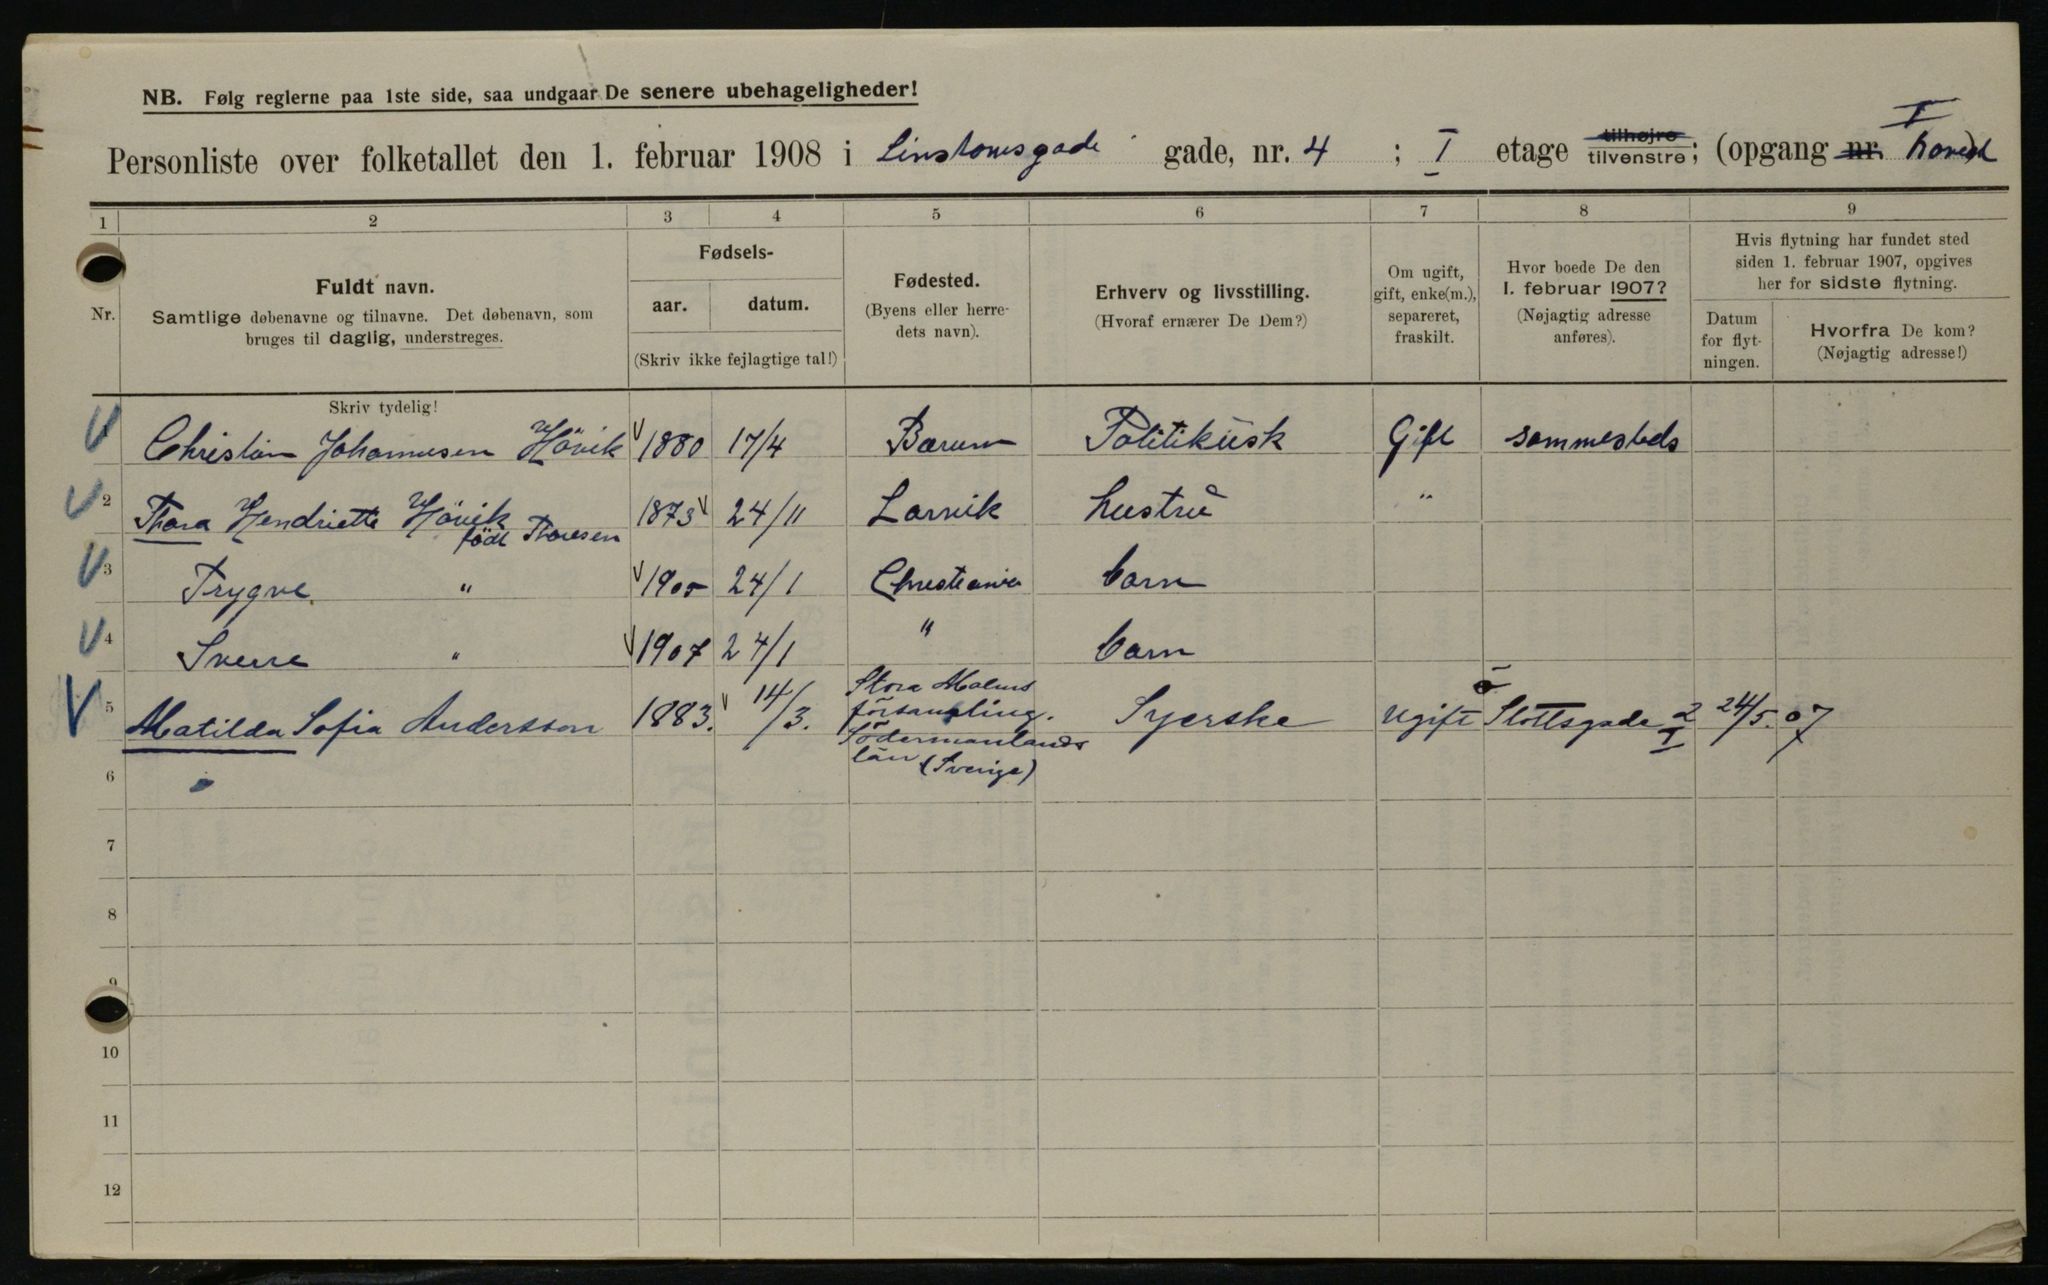 NB. Følg reglerne paa 1ste side, saa undgaar De senere ubehageligheder!
I
Personliste over folketallet den 1. februar 1908 i Linstowsgade gade, nr. 4 ; I etage tilhøjre tilvenstre; (opgang nr.
1 2 3 4 5 6 7 8 9
Nr.
Fuldt navn.
Samtlige døbenavne og tilnavne. Det døbenavn, som
bruges til daglig, understreges.
Skriv tydelig!
Fødsels-
aar. datum.
(Skriv ikke fejlagtige tal!)
Fødested.
(Byens eller herre-
dets navn).
Erhverv og livsstilling.
(Hvoraf ernærer De Dem?)
Om ugift,
gift, enke(m.),
separeret,
fraskilt.
Hvor boede De den
1. februar 1907?
(Nøjagtig adresse
anføres).
Hvis flytning har fundet sted
siden 1. februar 1907, opgives
her for sidste flytning.
Datum
for flyt-
ningen.
Hvorfra De kom?
(Nøjagtig adresse!)
Christian Johannesen Hövik 1880 17/4 Bærum Politikusk Gift sammesteds
2 Thora Hendriette Hövik 1873 24/11 Larvik hustru "
født Thoresen
3 Trygve " 1900 24/1 Christiania barn
4 Sverre " 1907 24/1 " barn
5 Matilda Sofia Andersson 1883. 14/3. Stora Malms Syerske ugift Slottsgade 2 I 24/5. 07
församling.
Södermanlands
län (Sverige)
6
7
8
9
10
11
12